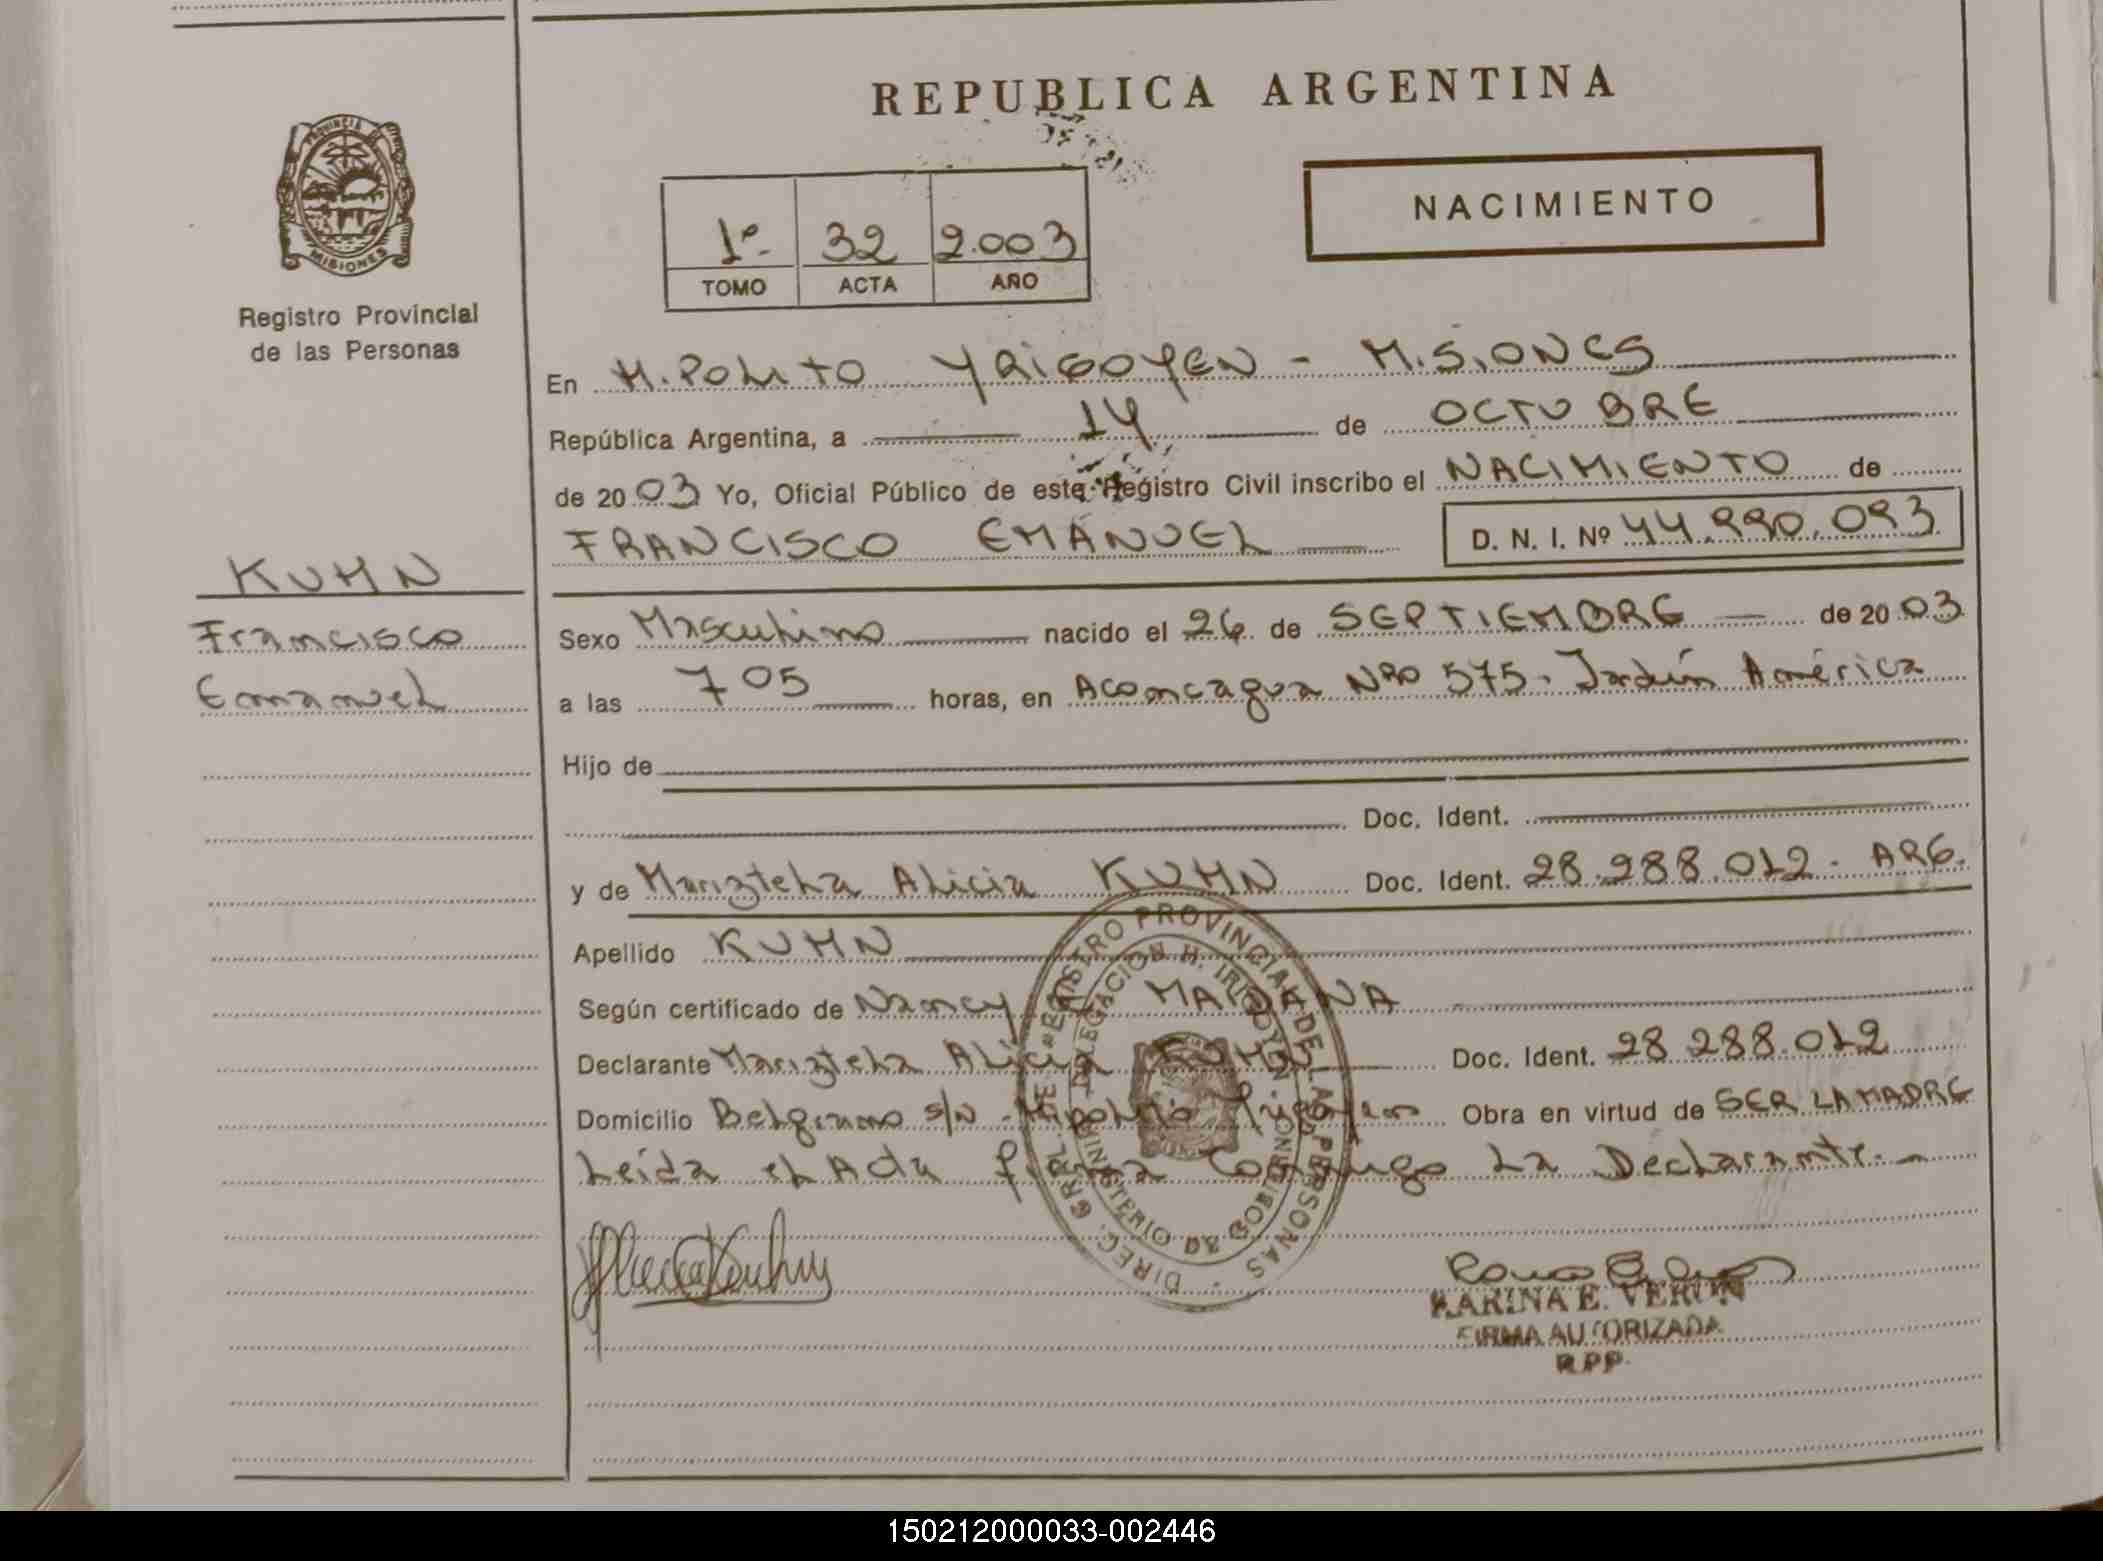 REPUBLICA ARGENTINA
PROVINCIA DE
MISIONES
Registro Provincial
de las Personas
1º- 32 2.003
TOMO ACTA AÑO
NACIMIENTO
En Hipolito YRIGOYEN - MISIONES
República Argentina, a 14 de OCTUBRE
de 2003 Yo, Oficial Público de este Registro Civil inscribo el NACIMIENTO de
FRANCISCO EMANUEL D. N. I. Nº 44.990.093
KUHN
Francisco
Emanuel
Sexo Masculino nacido el 26 de SEPTIEMBRE de 2003
a las 7 05 horas, en Aconcagua Nro 575. Jardín América
Hijo de
Doc. Ident.
y de Mariztela Alicia KUHN Doc. Ident. 28.288.012. ARG.
Apellido KUHN
Según certificado de Nancy MAIDANA
Declarante Mariztela Alicia KUHN Doc. Ident. 28 288.012
Domicilio Belgrano s/N - Hipolito Yrigoyen Obra en virtud de SER LA MADRE
Leída el Acta firma Conmigo La Declarante.
DIREC. GRAL. DE REGISTRO PROVINCIAL DE LAS PERSONAS
DELEGACION H. IRIGOYEN
MINISTERIO DE GOBIERNO
KARINA E. VERON
FIRMA AUTORIZADA
R.P.P.
150212000033-002446